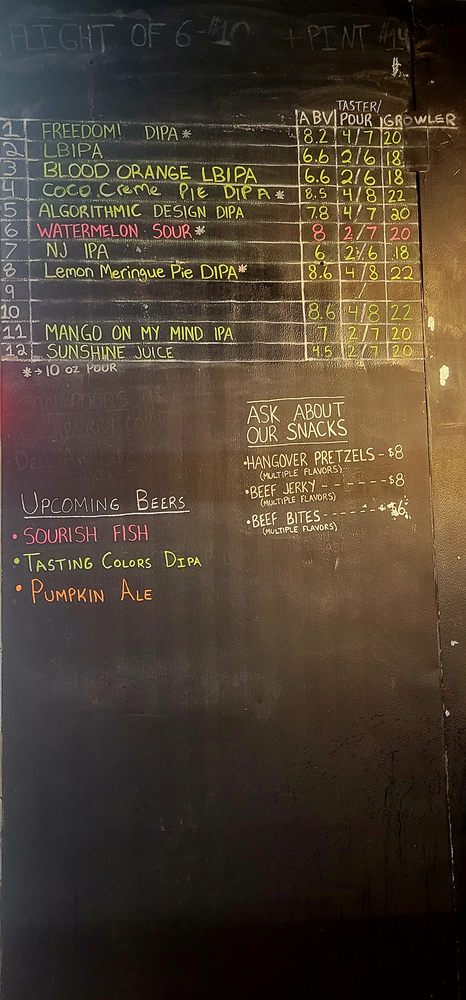 FLIGHT OF 6-$10 + PINT $14
ABV TASTER/POUR GROWLER
1 FREEDOM! DIPA* 8.2 4/7 20
2 LBIPA 6.6 2/6 18
3 BLOOD ORANGE LBIPA 6.6 2/6 18
4 COCO Creme Pie DIPA* 8.5 4/8 22
5 ALGORITHMIC DESIGN DIPA 7.8 4/7 20
6 WATERMELON SOUR* 8 2/7 20
7 NJ IPA 6 2/6 18
8 Lemon Meringue Pie DIPA* 8.6 4/8 22
9 /
10 8.6 4/8 22
11 MANGO ON MY MIND IPA 7 2/7 20
12 SUNSHINE JUICE 4.5 2/7 20
*→10 oz POUR
ASK ABOUT
OUR SNACKS
•HANGOVER PRETZELS-$8
(MULTIPLE FLAVORS)
•BEEF JERKY - - - - - - -$8
(MULTIPLE FLAVORS)
•BEEF BITES - - - - - - -$6
(MULTIPLE FLAVORS)
UPCOMING BEERS
• SOURISH FISH
• TASTING COLORS DIPA
• PUMPKIN ALE